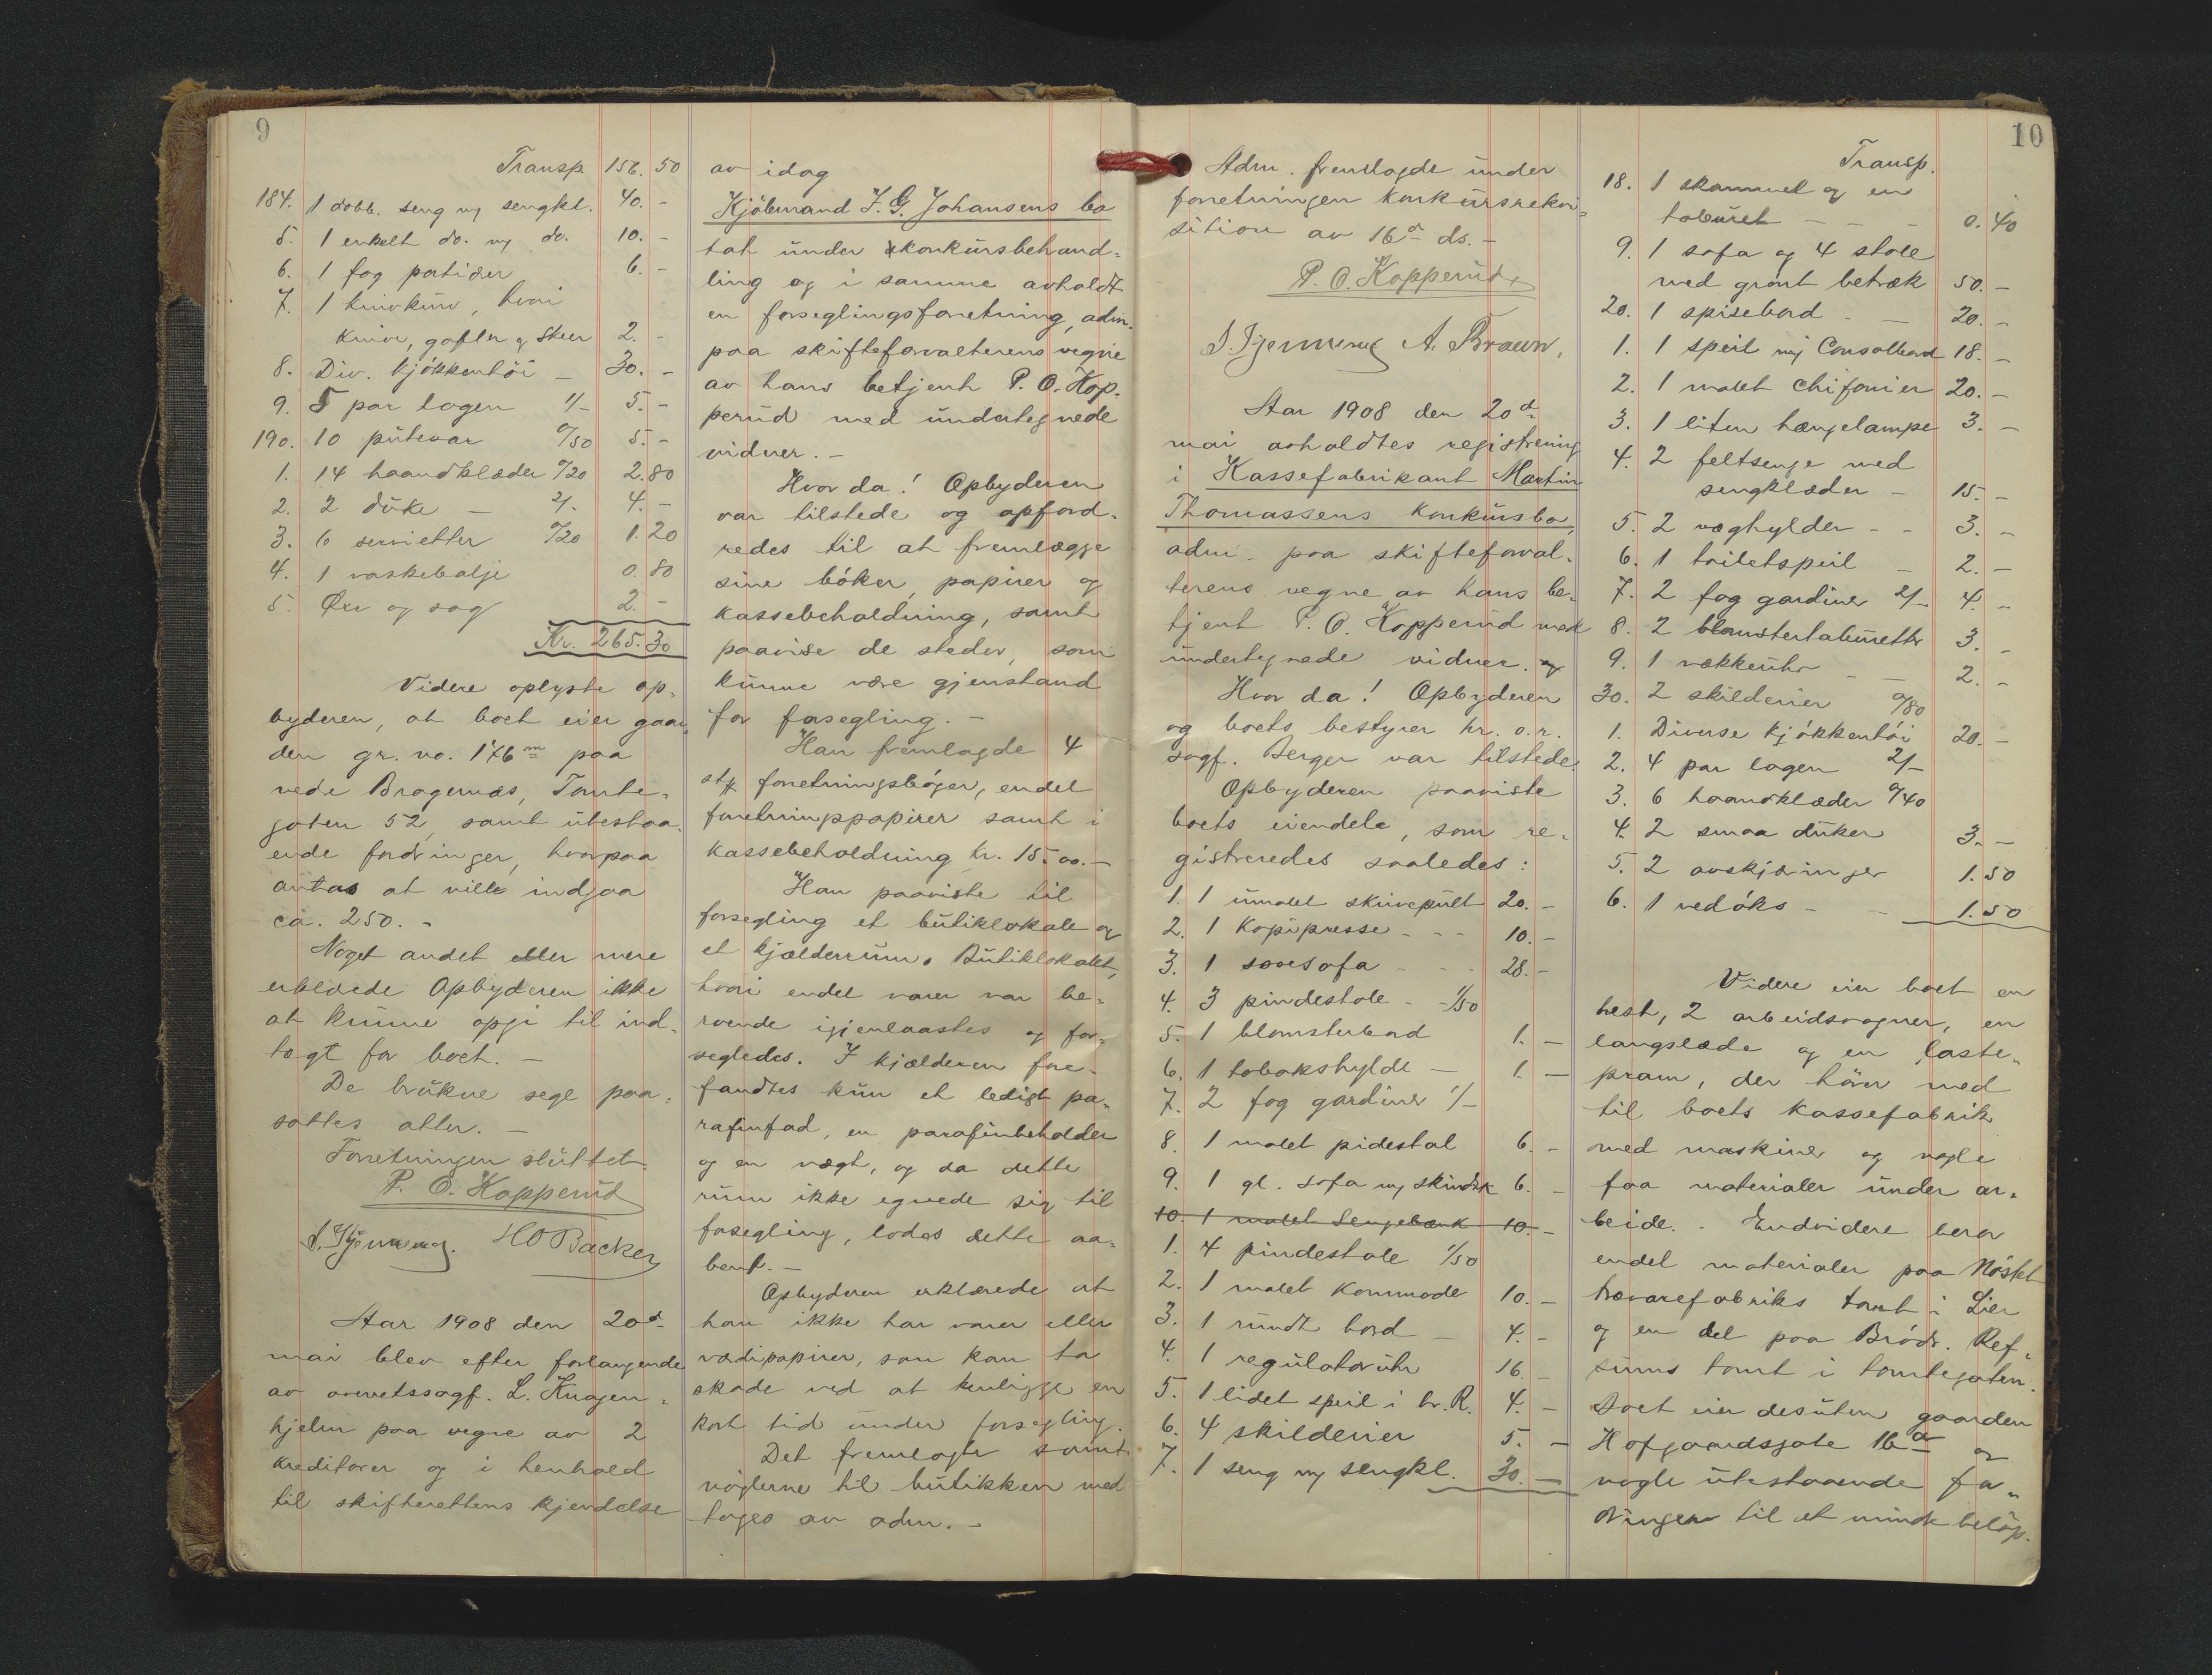 9
Transp. 156. 50
184. 1 dobb. seng m/ sengkl. 40. -
5. 1 enkelt do. m/ do. 10. -
6. 1 fag portierer 6. -
7. 1 knivkurv, hvori
kniver, gafler & skeer 2. -
8. Div. kjökkentöi - 30. -
9. 5 par lagen 1/- 5. -
190. 10 putevar 0/50 5. -
1. 14 haandklæder 0/20 2.80
2. 2 duke - 2/- 4. -
3. 6 servietter 0/20 1.20
4. 1 vaskebalje 0.80
5. Öxe og sag 2. -
Kr. 265.30
Videre oplyste op-
byderen, at boet eier gaar-
den gr. no. 176 m paa
nedre Bragernæs, Tomte-
gaten 52, samt utestaa-
ende fordringer, hvorpaa
antas at ville indgaa
ca. 250. -
Noget andet eller mere
erklærede Opbyderen ikke
at kunne opgi til ind-
tægt for boet. -
De brukne segl paa-
sattes atter. -
Forretningen sluttet.
P. O. Kopperud
HO Backer
Aar 1908 den 20de
mai blev efter forlangende
av overretssagf. L. Knagen-
hjelm paa vegne av 2
kreditorer og i henhold
til skifterettens kjendelse
av idag
Kjöbmand J. G. Johansens bo
tat under konkursbehand-
ling og i samme avholdt
en forseglingsforretning, adm.
paa skifteforvalterens vegne
av hans betjent P. O. Kop-
perud med undertegnede
vidner. -
Hvor da! Opbyderen
var tilstede og opford-
redes til at fremlægge
sine böker, papirer og
kassebeholdning, samt
paavise de steder, som
kunne være gjenstand
for forsegling. -
Han fremlagde 4
stk forretningsböger, endel
forretningspapirer samt i
kassebeholdning kr. 15.00. -
Han paaviste til
forsegling et butiklokale og
et kjælderrum. Butiklokalet,
hvori endel varer var be-
roende igjenlaastes og for-
segledes. I kjælderen fore-
fandtes kun et ledigt pa-
rafinfad, en parafinbeholder
og en vægt, og da dette
rum ikke egnede sig til
forsegling, lodes dette aa-
bent. -
Opbyderen erklærede at
han ikke har varer eller
værdipapirer, som kan ta
skade ved at henligge en
kort tid under forsegling.
Det fremlagte samt
nöglerne til butikken med
toges av adm. -
10
Adm. fremlagde under
forretningen konkursrekvi-
sition av 16de ds. -
P. O. Kopperud
A. Braun,
Aar 1908 den 20de
mai avholdtes registrering
i Kassefabrikant Martin
Thomassens konkursbo,
adm. paa skifteforval-
terens vegne av hans be-
tjent P. O. Kopperud med
undertegnede vidner.
Hvor da! Opbyderen
og boets bestyrer hr. o.r.
sagf. Berger var tilstede.
Opbyderen paaviste
boets eiendele, som re-
gistreredes saaledes:
1. 1 umalet skrivepult 20. -
2. 1 Kopipresse - - - 10. -
3. 1 sovesofa - - - 28. -
4. 3 pindestole - - 1/50
5. 1 blomsterbord 1. -
6. 1 tobakshylde - 1. -
7. 2 fag gardiner 1/-
8. 1 malet pidestal 6. -
9. 1 gl. sofa m/ skindtr. 6. -
10. 1 malet Sengebænk 10. -
1. 4 pindestole 1/50
2. 1 malet kommode 10. -
3. 1 rundt bord - 4. -
4. 1 regulatoruhr 16. -
5. 1 lidet speil i br. R. 4. -
6. 4 skilderier 5. -
7. 1 seng m/ sengkl. 30. -
Transp.
18. 1 skammel og en
taburet - - - 0.40
9. 1 sofa og 4 stole
med grönt betræk 50. -
20. 1 spisebord - - 20. -
1. 1 speil m/ Consolbord 18. -
2. 1 malet chifonier 20. -
3. 1 liten hængelampe 3. -
4. 2 feltsenge med
sengklæder - 15. -
5. 2 væghylder - - 3. -
6. 1 toiletspeil - 2. -
7. 2 fag gardiner 2/- 4. -
8. 2 blomstertaburetter 3. -
9. 1 vækkeuhr - - 2. -
30. 2 skilderier 0/80
1. Diverse kjökkentöi 20. -
2. 4 par lagen 2/-
3. 6 haandklæder 0/40
4. 2 smaa duker 3. -
5. 2 avskjæringer 1.50
6. 1 vedöks - - 1.50
Videre eier boet en
hest, 2 arbeidsvogner, en
langslæde og en laste-
pram, der hörer med
til boets kassefabrik
med maskiner og nogle
faa materialer under ar-
beide. - Endvidere beror
endel materialer paa Nöstet
trævarefabriks tomt i Lier
og en del paa Brödr. Ref-
sums tomt i tomtegaten.
Boet eier desuten gaarden
Hofgaardsgate 16 a og
nogle utestaaende for-
dringer til et mindre belöp.